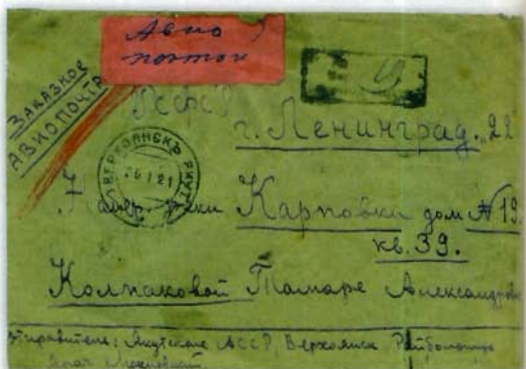 Авио
почтой
ЗАКАЗНОЕ
АВИОПОЧТА
РСФСР
г. Ленинград. 22
ВЕРХОЯНСКЪ ЯКУТ.
26 1 21
реки Карповки дом № 19.
кв. 39.
Колпаковой Тамаре Александровн
Отправитель: Якутская АССР, Верхоянск Райбольница
врач